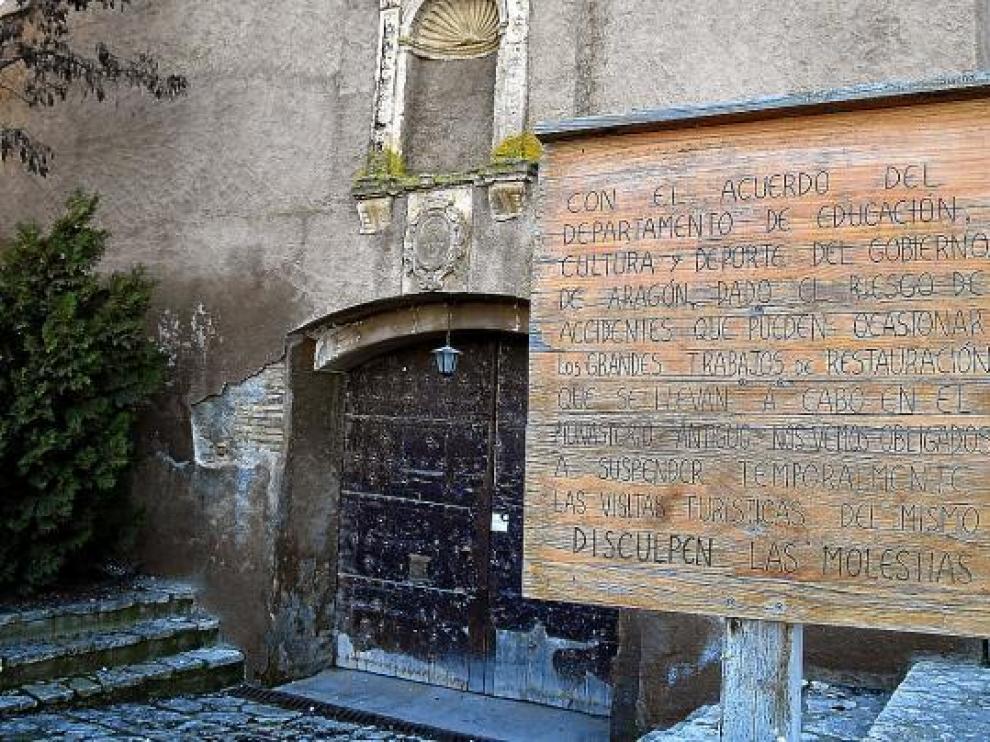 CON EL ACUERDO DEL
DEPARTAMENTO DE EDUCACIÓN,
CULTURA Y DEPORTE DEL GOBIERNO
DE ARAGÓN, DADO EL RIESGO DE
ACCIDENTES QUE PUEDEN OCASIONAR
LOS GRANDES TRABAJOS DE RESTAURACIÓN
QUE SE LLEVAN A CABO EN EL
MONASTERIO ANTIGUO NOS VEMOS OBLIGADOS
A SUSPENDER TEMPORALMENTE
LAS VISITAS TURÍSTICAS DEL MISMO
DISCULPEN LAS MOLESTIAS